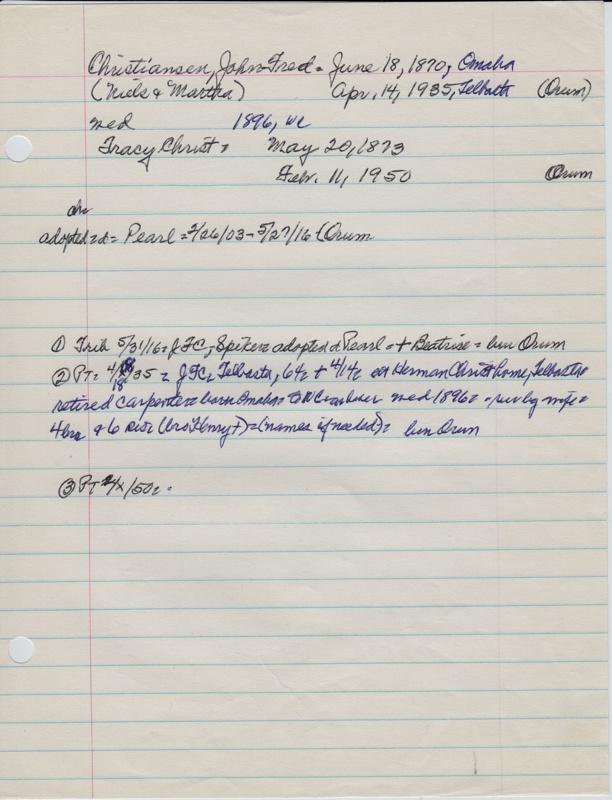 Christiansen, John Fred = June 18, 1870, Omaha
(Niels & Martha) Apr. 14, 1935, Telbasta (Orum)
med 1896, WC
Tracy Christ = May 20, 1873
Febr. 11, 1950 Orum
ch
adopted d = Pearl = 2/26/03 - 5/27/16 (Orum
① Trib 5/31/16 = JFC, Spiker = adopted d Pearl = + Beatrise = bur Orum
② PT = 4/18/35 = JFC, Telbasta, 64 = + 4/14 = at Herman Christ home, Telbasta =
18
retired carpenter = born Omaha = to WC = med 1896 = = surv by wife =
4 bro & 6 sis (bro Henry +) = (names if needed) = bur Orum
③ PT 2/x/50 =